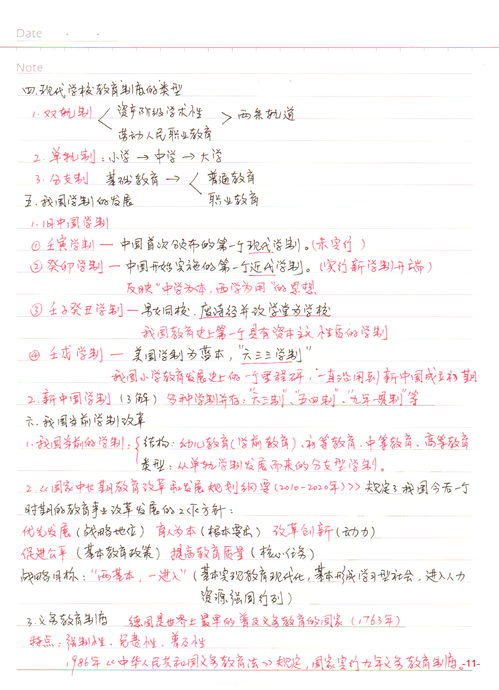 Date
Note
四.现代学校教育制度的类型
1.双轨制 < 资产阶级学术性 > 两条轨道
劳动人民职业教育
2.单轨制:小学→中学→大学
3.分支制 基础教育→< 普通教育
职业教育
五.我国学制的发展
1.旧中国学制
①壬寅学制—中国首次颁布的第一个现代学制。(未实行)
②癸卯学制—中国开始实施的第一个近代学制。(实行新学制开端)
反映"中学为体,西学为用"的思想
③壬子癸丑学制—男女同校,废读经并改学堂为学校
我国教育史上第一个具有资本主义性质的学制
④壬戌学制—美国学制为蓝本,"六三三学制"
我国小学教育发展史上的一个里程碑,一直沿用到新中国成立初期
2.新中国学制(了解)多种学制并存:"六三制"、"五四制"、"九年一贯制"等
六.我国当前学制改革
1.我国当前的学制:{结构:幼儿教育(学前教育)、初等教育、中等教育、高等教育
类型:从单轨学制发展而来的分支型学制。
2.《国家中长期教育改革和发展规划纲要(2010-2020年)》规定了我国今后一个
时期的教育事业改革发展的工作方针:
优先发展(战略地位) 育人为本(根本要求) 改革创新(动力)
促进公平(基本教育政策) 提高教育质量(核心任务)
战略目标:"两基本,一进入"(基本实现教育现代化,基本形成学习型社会,进入人力
资源强国行列)
3.义务教育制度 德国是世界上最早的普及义务教育的国家(1763年)
特点:强制性、免费性、普及性
1986年《中华人民共和国义务教育法》规定,国家实行九年义务教育制度。
-11-